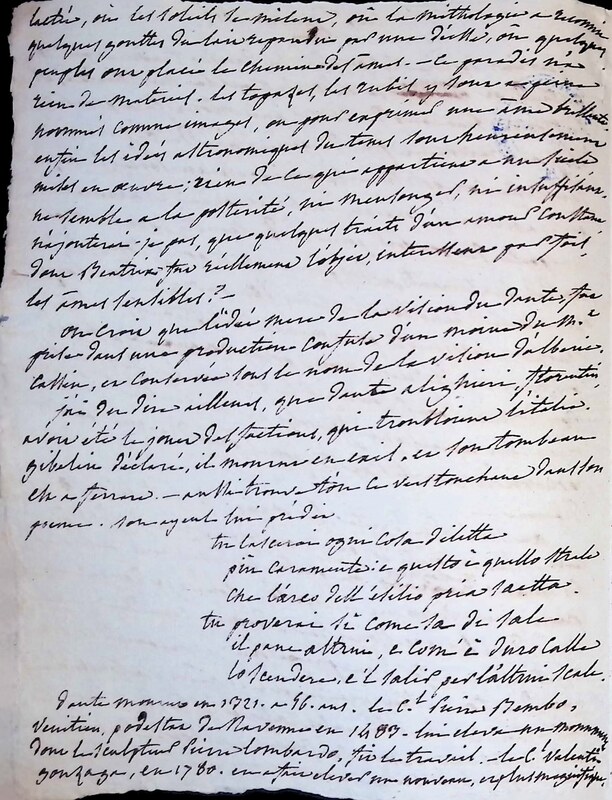 lactée, où les soleils se mêlent, où la mithologie a reconnu
quelques gouttes du lait repandu par une déesse, où quelques
peuples ont placé le chemin des âmes. – Ce paradis n'a
rien de materiel. les topazes, les rubis, y sont à peine
nommés comme images, ou pour exprimer une âme brillante
enfin les idées astronomiques du tems sont heureusement
mises en œuvre; rien de ce qui appartient a un siecle
ne semble a la postérité, ni mensonges, ni insuffisans.
n'ajouterai-je pas, que quelques traits d'un amour constant
dont Béatrix fut réellement l'objet, interessent par fois,
les âmes sensibles? –
on croit que l'idée mere de la vision du dante, fut
prise dans une production confuse d'un moine du Mt
Cassin, et conservée sous le nom de la vision d'alberic.
j'ai du dire ailleurs, que dante alighieri, florentin
avoit été le jouet des factions, qui troubloient l'italie.
gibelin déclaré, il mourut en exil. et son tombeau
est a ferrare. – aussi trouve t'on ce vers touchant dans son
poeme. son ayeul lui predit
tu lascerai ogni cosa diletta
più caramente: e questo è quello strale
che l'arco dell'ésilio pria saetta.
tu proverai sì come sa di sale
il pane altrui, e com'è duro calle
lo scendere, e'l salir per l'altrui scale.
dante mourut en 1321. a 56. ans. le Ct Pierre Bembo,
venitien, podestat de Ravenne en 1483 – lui eleva un monument
dont le sculpteur Pierre lombardo, fit le travail. – le Cl Valenti
gonzaga, en 1780. en a fait elever un nouveau, et plus magnifique.